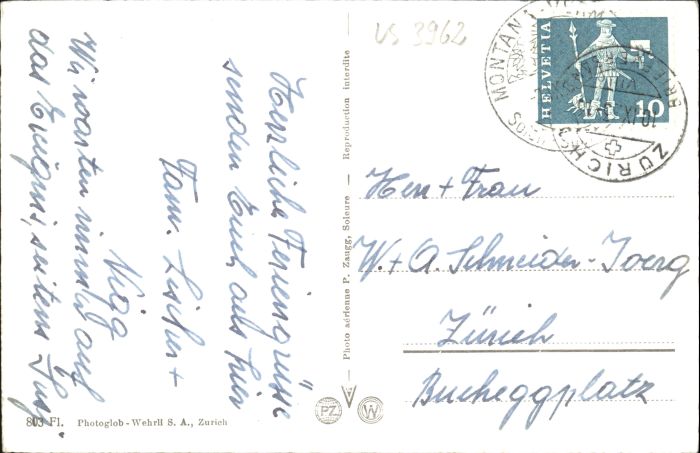 VS 3962
HELVETIA
10
MONTANA-V
ZÜRICH
BRIEFVERSAND
10.IX.
Herzliche Feriengrüsse
senden Euch aus hier
Fam. Lischer +
Nigg
Wir warten immer auf
das Ereignis, seitens Jung
Photo aérienne P. Zaugg, Soleure — Reproduction interdite
Herr + Frau
W. + A. Schneider-Joerg
Zürich
Bucheggplatz
803 Fl. Photoglob-Wehrli S. A., Zurich
PZ
W